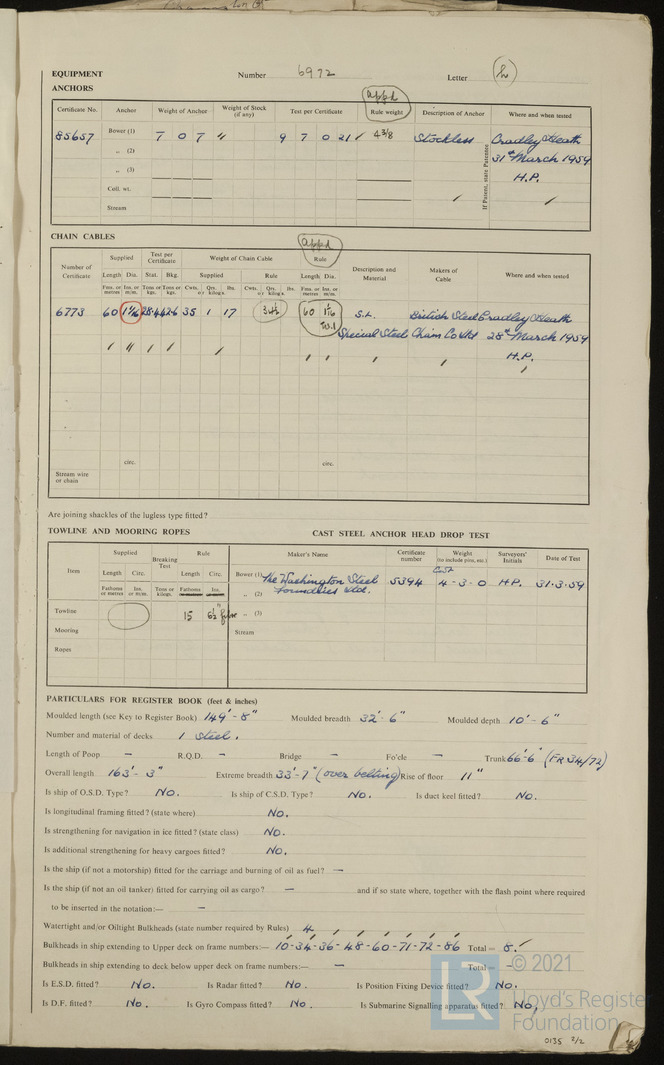 EQUIPMENT Number 6972 Letter (h)
ANCHORS
Appd
Certificate No. Anchor Weight of Anchor Weight of Stock (if any) Test per Certificate Rule weight Description of Anchor Where and when tested
85657 Bower (1) 7 0 7 " 9 7 0 21 4 3/8 Stockless Cradley Heath
„ (2) 31st March 1959
„ (3) H.P.
Coll. wt.
Stream
If Patent, state Patentee
CHAIN CABLES
Appd
Number of Certificate Supplied Test per Certificate Weight of Chain Cable Rule Description and Material Makers of Cable Where and when tested
Length Dia. Stat. Bkg. Supplied Rule Length Dia.
Fms. or metres Ins. or m/m. Tons or kgs. Tons or kgs. Cwts. or Qrs. kilog's. lbs. Cwts. or Qrs. kilog's. lbs. Fms. or metres Ins. or m/m.
6773 60 1 1/16 28.4 42.6 35 1 17 34½ 60 1 1/16 S.L. British Steel Cradley Heath
Special Steel Chain Co Ltd 28th March 1959
H.P.
circ. circ.
Stream wire or chain
Are joining shackles of the lugless type fitted?
TOWLINE AND MOORING ROPES CAST STEEL ANCHOR HEAD DROP TEST
Item Supplied Breaking Test Rule Maker's Name Certificate number Weight (to include pins, etc.) Surveyors' Initials Date of Test
Length Circ. Length Circ.
Fathoms or metres Ins. or m/m. Tons or kilogs. Fathoms Ins.
Cwt
Bower (1) The Washington Steel 5394 4-3-0 H.P. 31.3.59
„ (2) Foundries Ltd.
Towline 15 6½ „ (3)
Mooring Stream
Ropes
PARTICULARS FOR REGISTER BOOK (feet & inches)
Moulded length (see Key to Register Book) 149'-8" Moulded breadth 32'-6" Moulded depth 10'-6"
Number and material of decks 1 Steel.
Length of Poop – R.Q.D. – Bridge – Fo'cle – Trunk 66'-6" (FR 34/72)
Overall length 163'-3" Extreme breadth 33'-7" (over belting) Rise of floor 11"
Is ship of O.S.D. Type? No. Is ship of C.S.D. Type? No. Is duct keel fitted? No.
Is longitudinal framing fitted? (state where) No.
Is strengthening for navigation in ice fitted? (state class) No.
Is additional strengthening for heavy cargoes fitted? No.
Is the ship (if not a motorship) fitted for the carriage and burning of oil as fuel? –
Is the ship (if not an oil tanker) fitted for carrying oil as cargo? – and if so state where, together with the flash point where required
to be inserted in the notation:— –
Watertight and/or Oiltight Bulkheads (state number required by Rules) 4
Bulkheads in ship extending to Upper deck on frame numbers:— 10-34-36-48-60-71-72-86 Total = 8.
Bulkheads in ship extending to deck below upper deck on frame numbers:— – Total = –
Is E.S.D. fitted? No. Is Radar fitted? No. Is Position Fixing Device fitted? No.
Is D.F. fitted? No. Is Gyro Compass fitted? No. Is Submarine Signalling apparatus fitted? No.
LR © 2021
Lloyd's Register
Foundation
0135 2/2